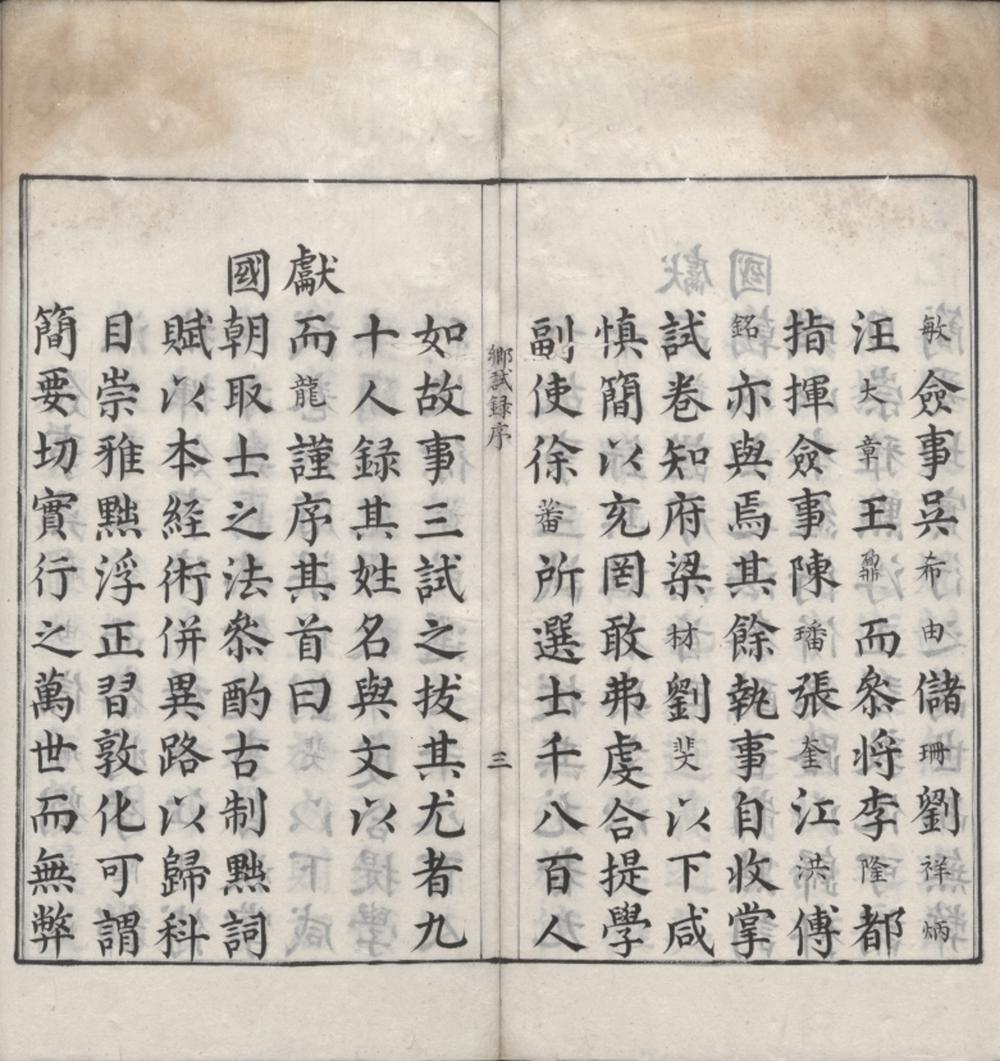 敏僉事吳希由儲珊劉祥炳
汪大章王鼐而叅将李隆都
指揮僉事陳璠張奎江洪傅
銘亦與焉其餘執事自收掌
試卷知府梁材劉斐以下咸
慎簡以充罔敢弗虔合提學
副使徐蕃所選士千八百人
鄉試録序
三
如故事三試之拔其尤者九
十人録其姓名與文以
獻而龍謹序其首曰
國朝取士之法叅酌古制黜詞
賦以本經術併異路以歸科
目崇雅黜浮正習敦化可謂
簡要切實行之萬世而無弊